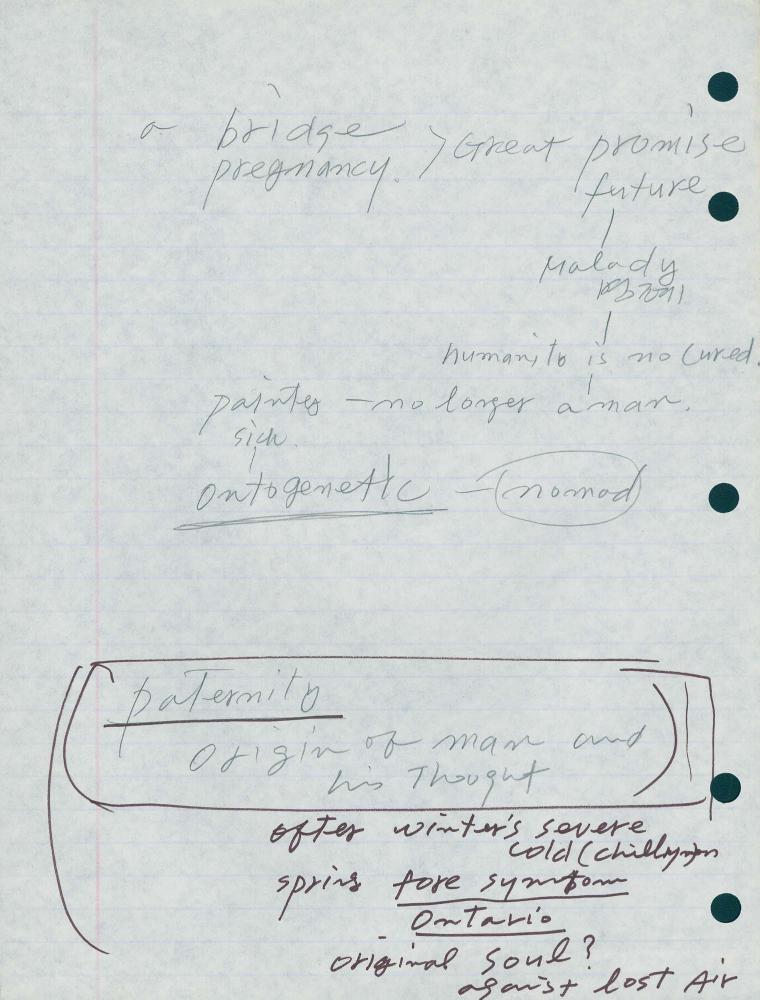 a bridge
pregnancy. > Great promise
future
Malady
humanity is no cured.
painter — no longer a man.
sick.
ontogenetic — nomad
paternity
Origin of man and
his Thought
after winter's severe
cold (chillyman
spring fore symptom
Ontario
original soul?
against lost Air